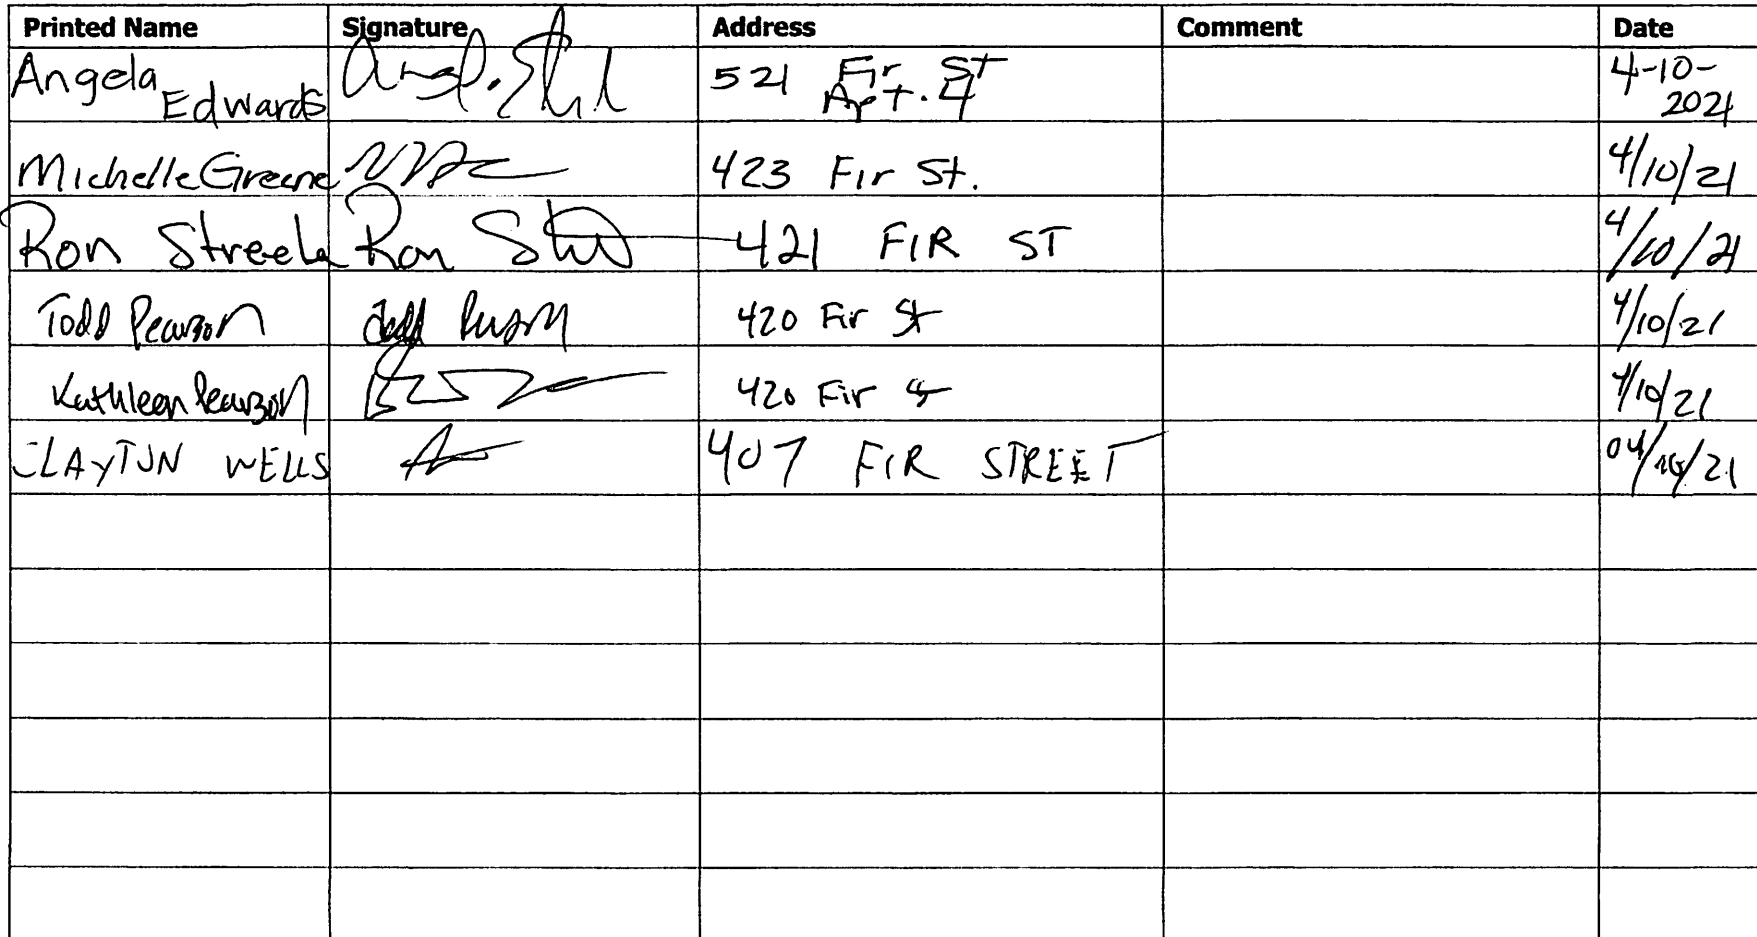 Printed Name Signature Address Comment Date
Angela Edwards 521 Fir St Apt. 4 4-10-2021
Michelle Greene 423 Fir St. 4/10/21
Ron Ron 421 FIR ST 4/10/21
Todd Pearson Todd Pearson 420 Fir St 4/10/21
Kathleen Pearson 420 Fir St 4/10/21
CLAYTON WELLS 407 FIR STREET